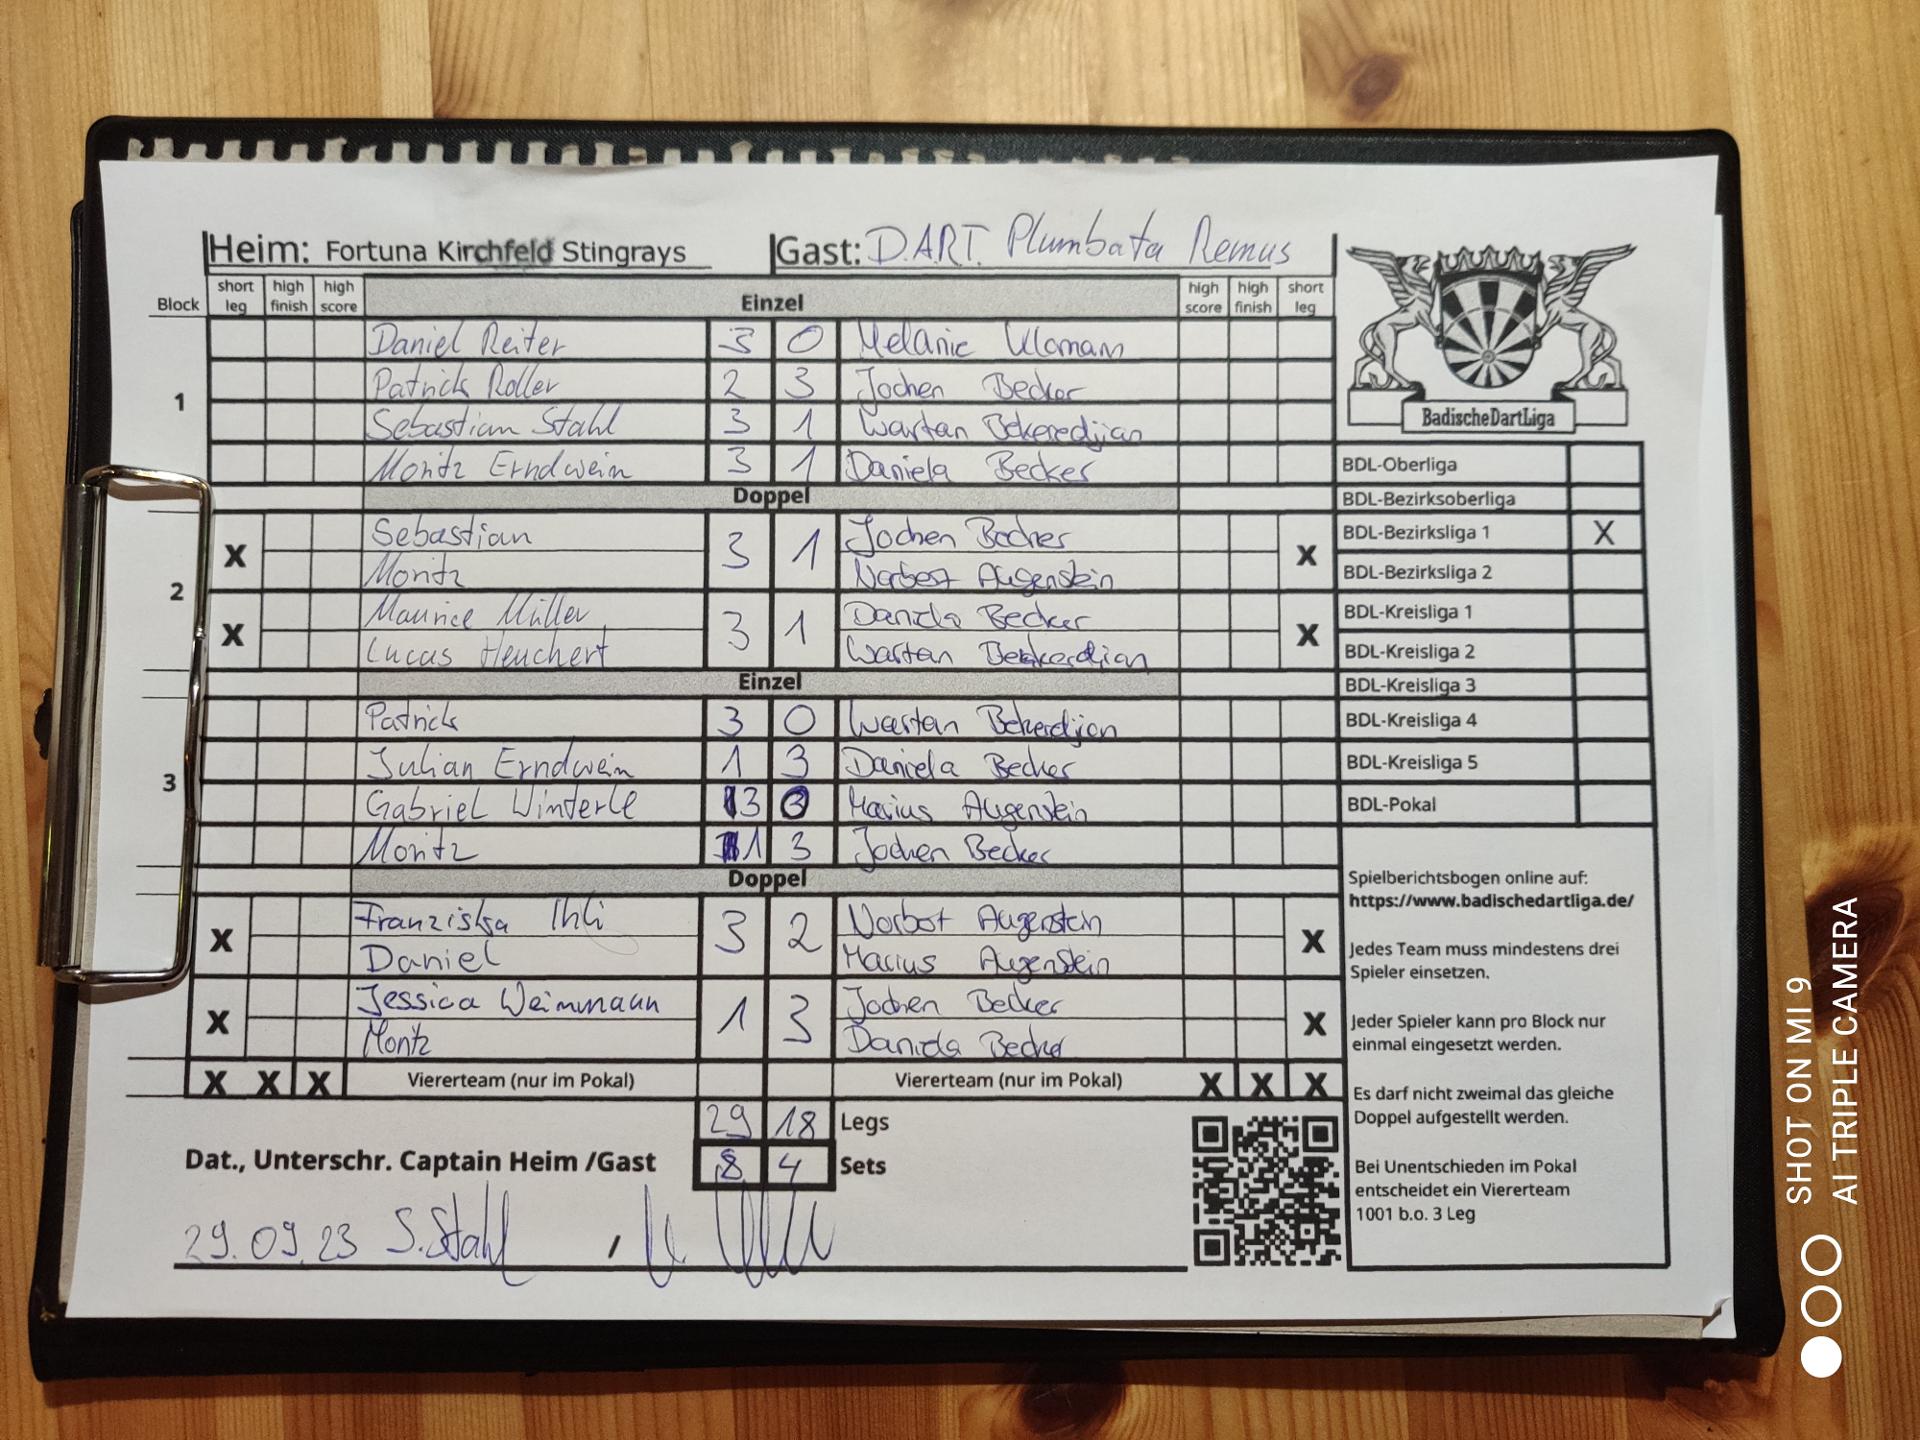 Heim: Fortuna Kirchfeld Stingrays Gast: D.A.R.T. Plumbata Remus
Block short leg high finish high score Einzel high score high finish short leg
Daniel Reiter 3 0 Melanie
1 Patrick Roller 2 3 Jochen Becker
Sebastian Stahl 3 1 Wartan Bekeredjian
Moritz Erndwein 3 1 Daniela Becker
Doppel
2
X Sebastian 3 1 Jochen Becker X
Moritz Norbert Augenstein
X Maurice Müller 3 1 Daniela Becker X
Lucas Heuchert Wartan
Einzel
3
Patrick 3 0 Wartan Bekerdijan
Julian Erndwein 1 3 Daniela Becker
Gabriel Winterle 3 0 Marius Augenstein
Moritz 1 3 Jochen Becker
Doppel
X Franziska Ihli 3 2 Norbert Augenstein X
Daniel Marius Augenstein
X Jessica Weinmann 1 3 Jochen Becker X
Moritz Daniela Becker
X X X Viererteam (nur im Pokal) Viererteam (nur im Pokal) X X X
29 18 Legs
Dat., Unterschr. Captain Heim /Gast 8 4 Sets
29.09.23 S.Stahl /
BadischeDartLiga
BDL-Oberliga
BDL-Bezirksoberliga
BDL-Bezirksliga 1 X
BDL-Bezirksliga 2
BDL-Kreisliga 1
BDL-Kreisliga 2
BDL-Kreisliga 3
BDL-Kreisliga 4
BDL-Kreisliga 5
BDL-Pokal
Spielberichtsbogen online auf:
https://www.badischedartliga.de/
Jedes Team muss mindestens drei
Spieler einsetzen.
Jeder Spieler kann pro Block nur
einmal eingesetzt werden.
Es darf nicht zweimal das gleiche
Doppel aufgestellt werden.
Bei Unentschieden im Pokal
entscheidet ein Viererteam
1001 b.o. 3 Leg
SHOT ON MI 9
AI TRIPLE CAMERA